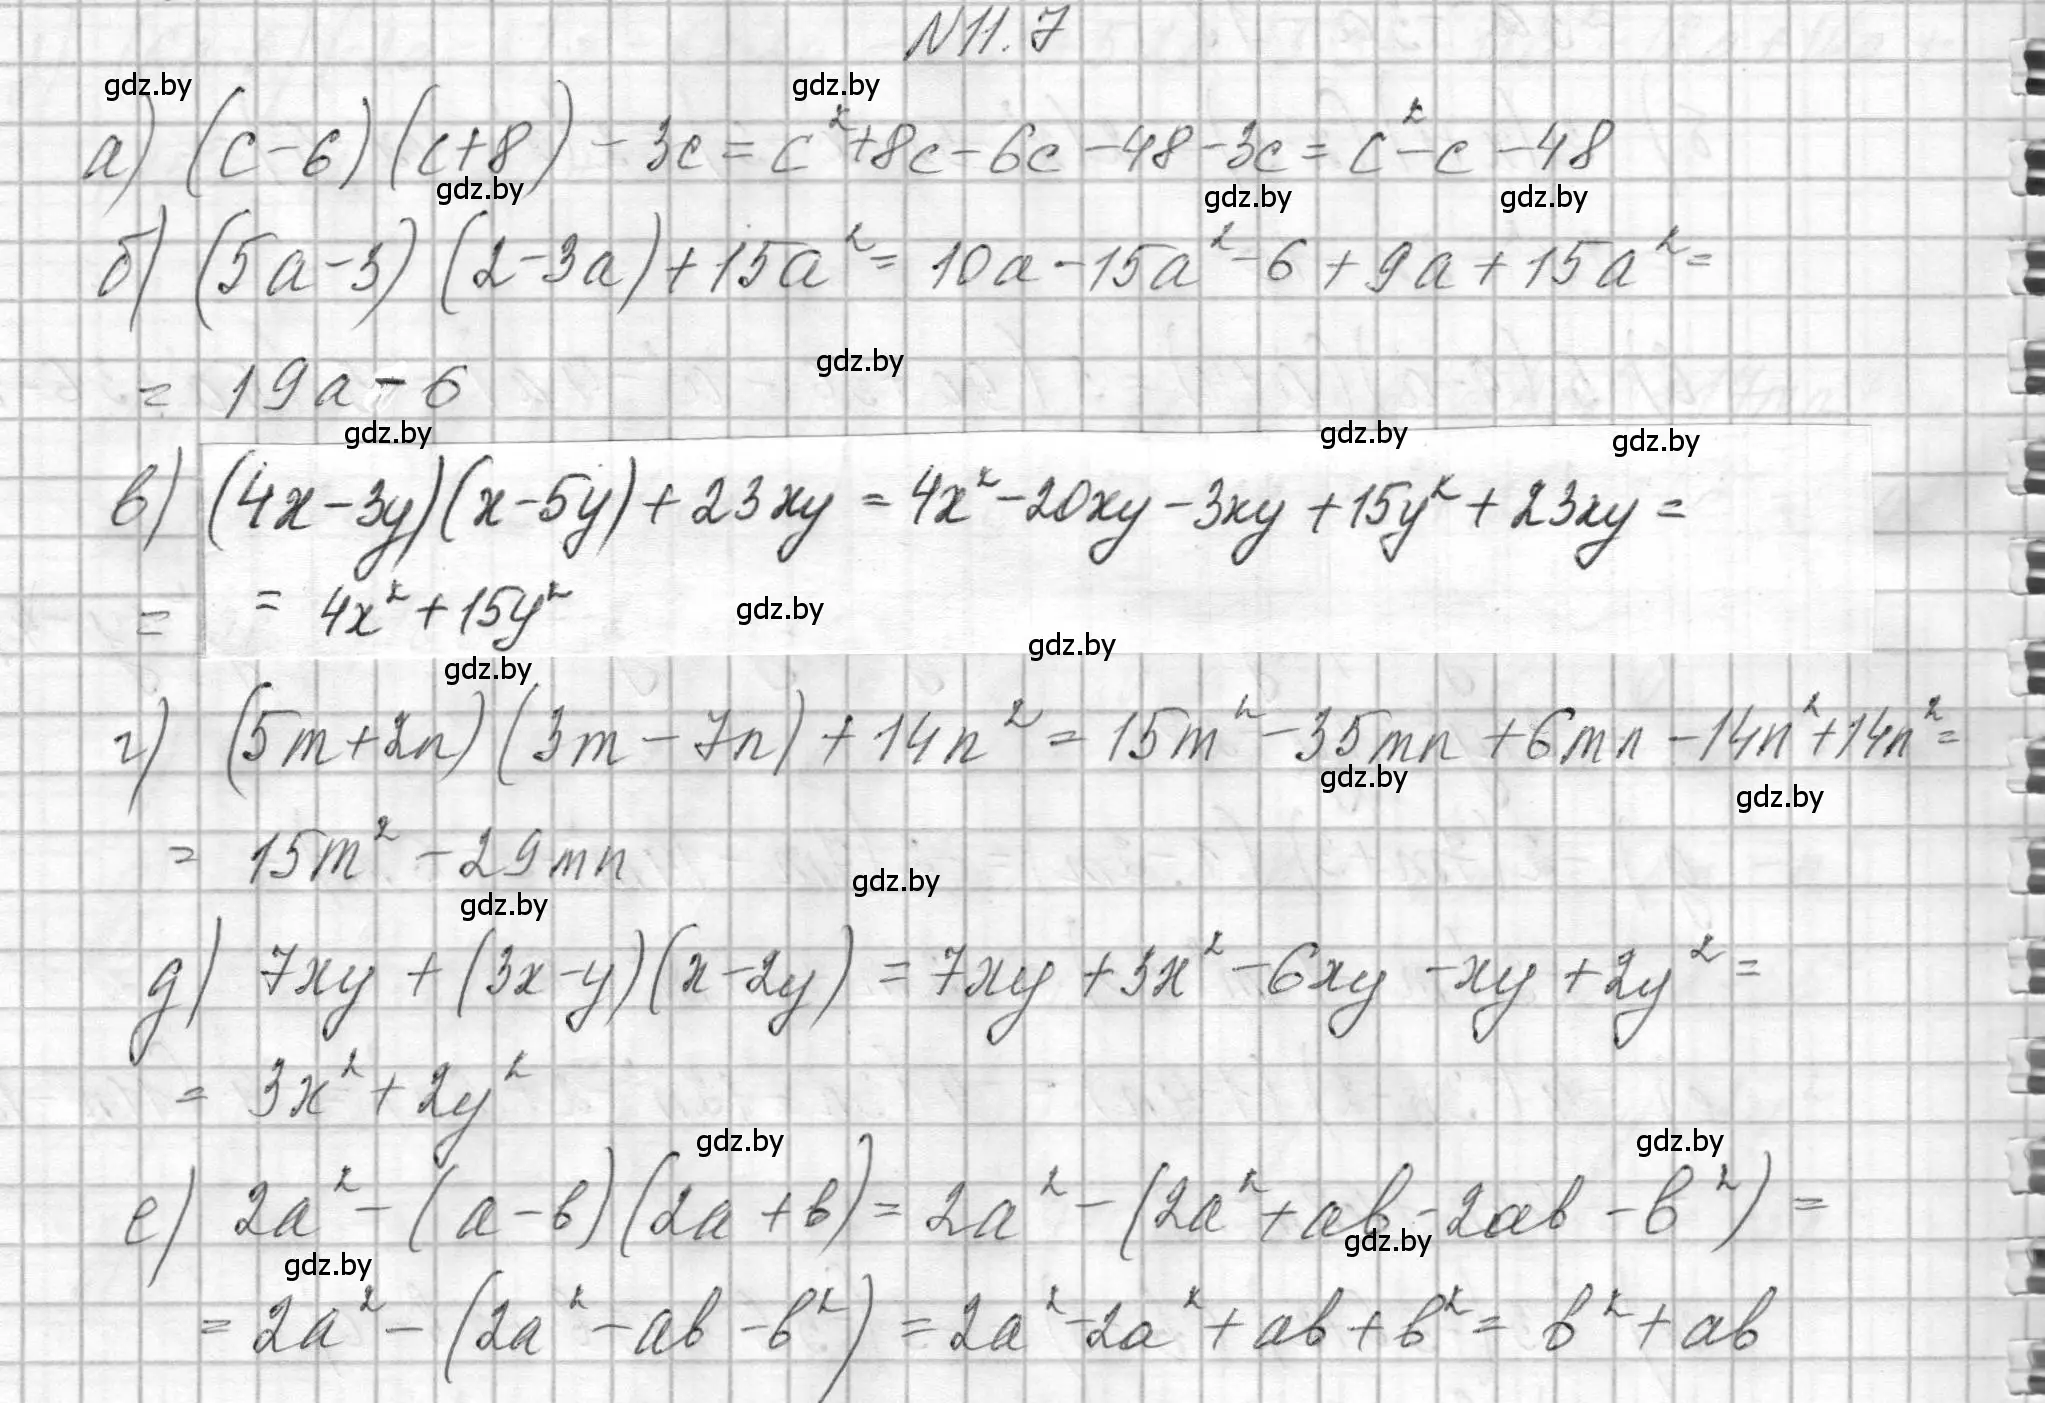 N11.7
gdz.by gdz.by
а) (c-6)(c+8) - 3c = c²+8c-6c-48-3c = c²-c-48
gdz.by gdz.by gdz.by
б) (5a-3)(2-3a)+15a² = 10a-15a²-6+9a+15a² =
gdz.by
= 19a-6
gdz.by gdz.by gdz.by
в) (4x-3y)(x-5y)+23xy = 4x²-20xy-3xy+15y²+23xy =
= = 4x²+15y²
gdz.by
gdz.by
gdz.by
г) (5m+2n)(3m-7n)+14n² = 15m²-35mn+6mn-14n²+14n² =
gdz.by gdz.by
= 15m²-29mn
gdz.by
gdz.by
д) 7xy+(3x-y)(x-2y) = 7xy+3x²-6xy-xy+2y² =
= 3x²+2y²
gdz.by gdz.by
е) 2a²-(a-b)(2a+b) = 2a²-(2a²+ab-2ab-b²) =
gdz.by gdz.by
= 2a²-(2a²-ab-b²) = 2a²-2a²+ab+b² = b²+ab